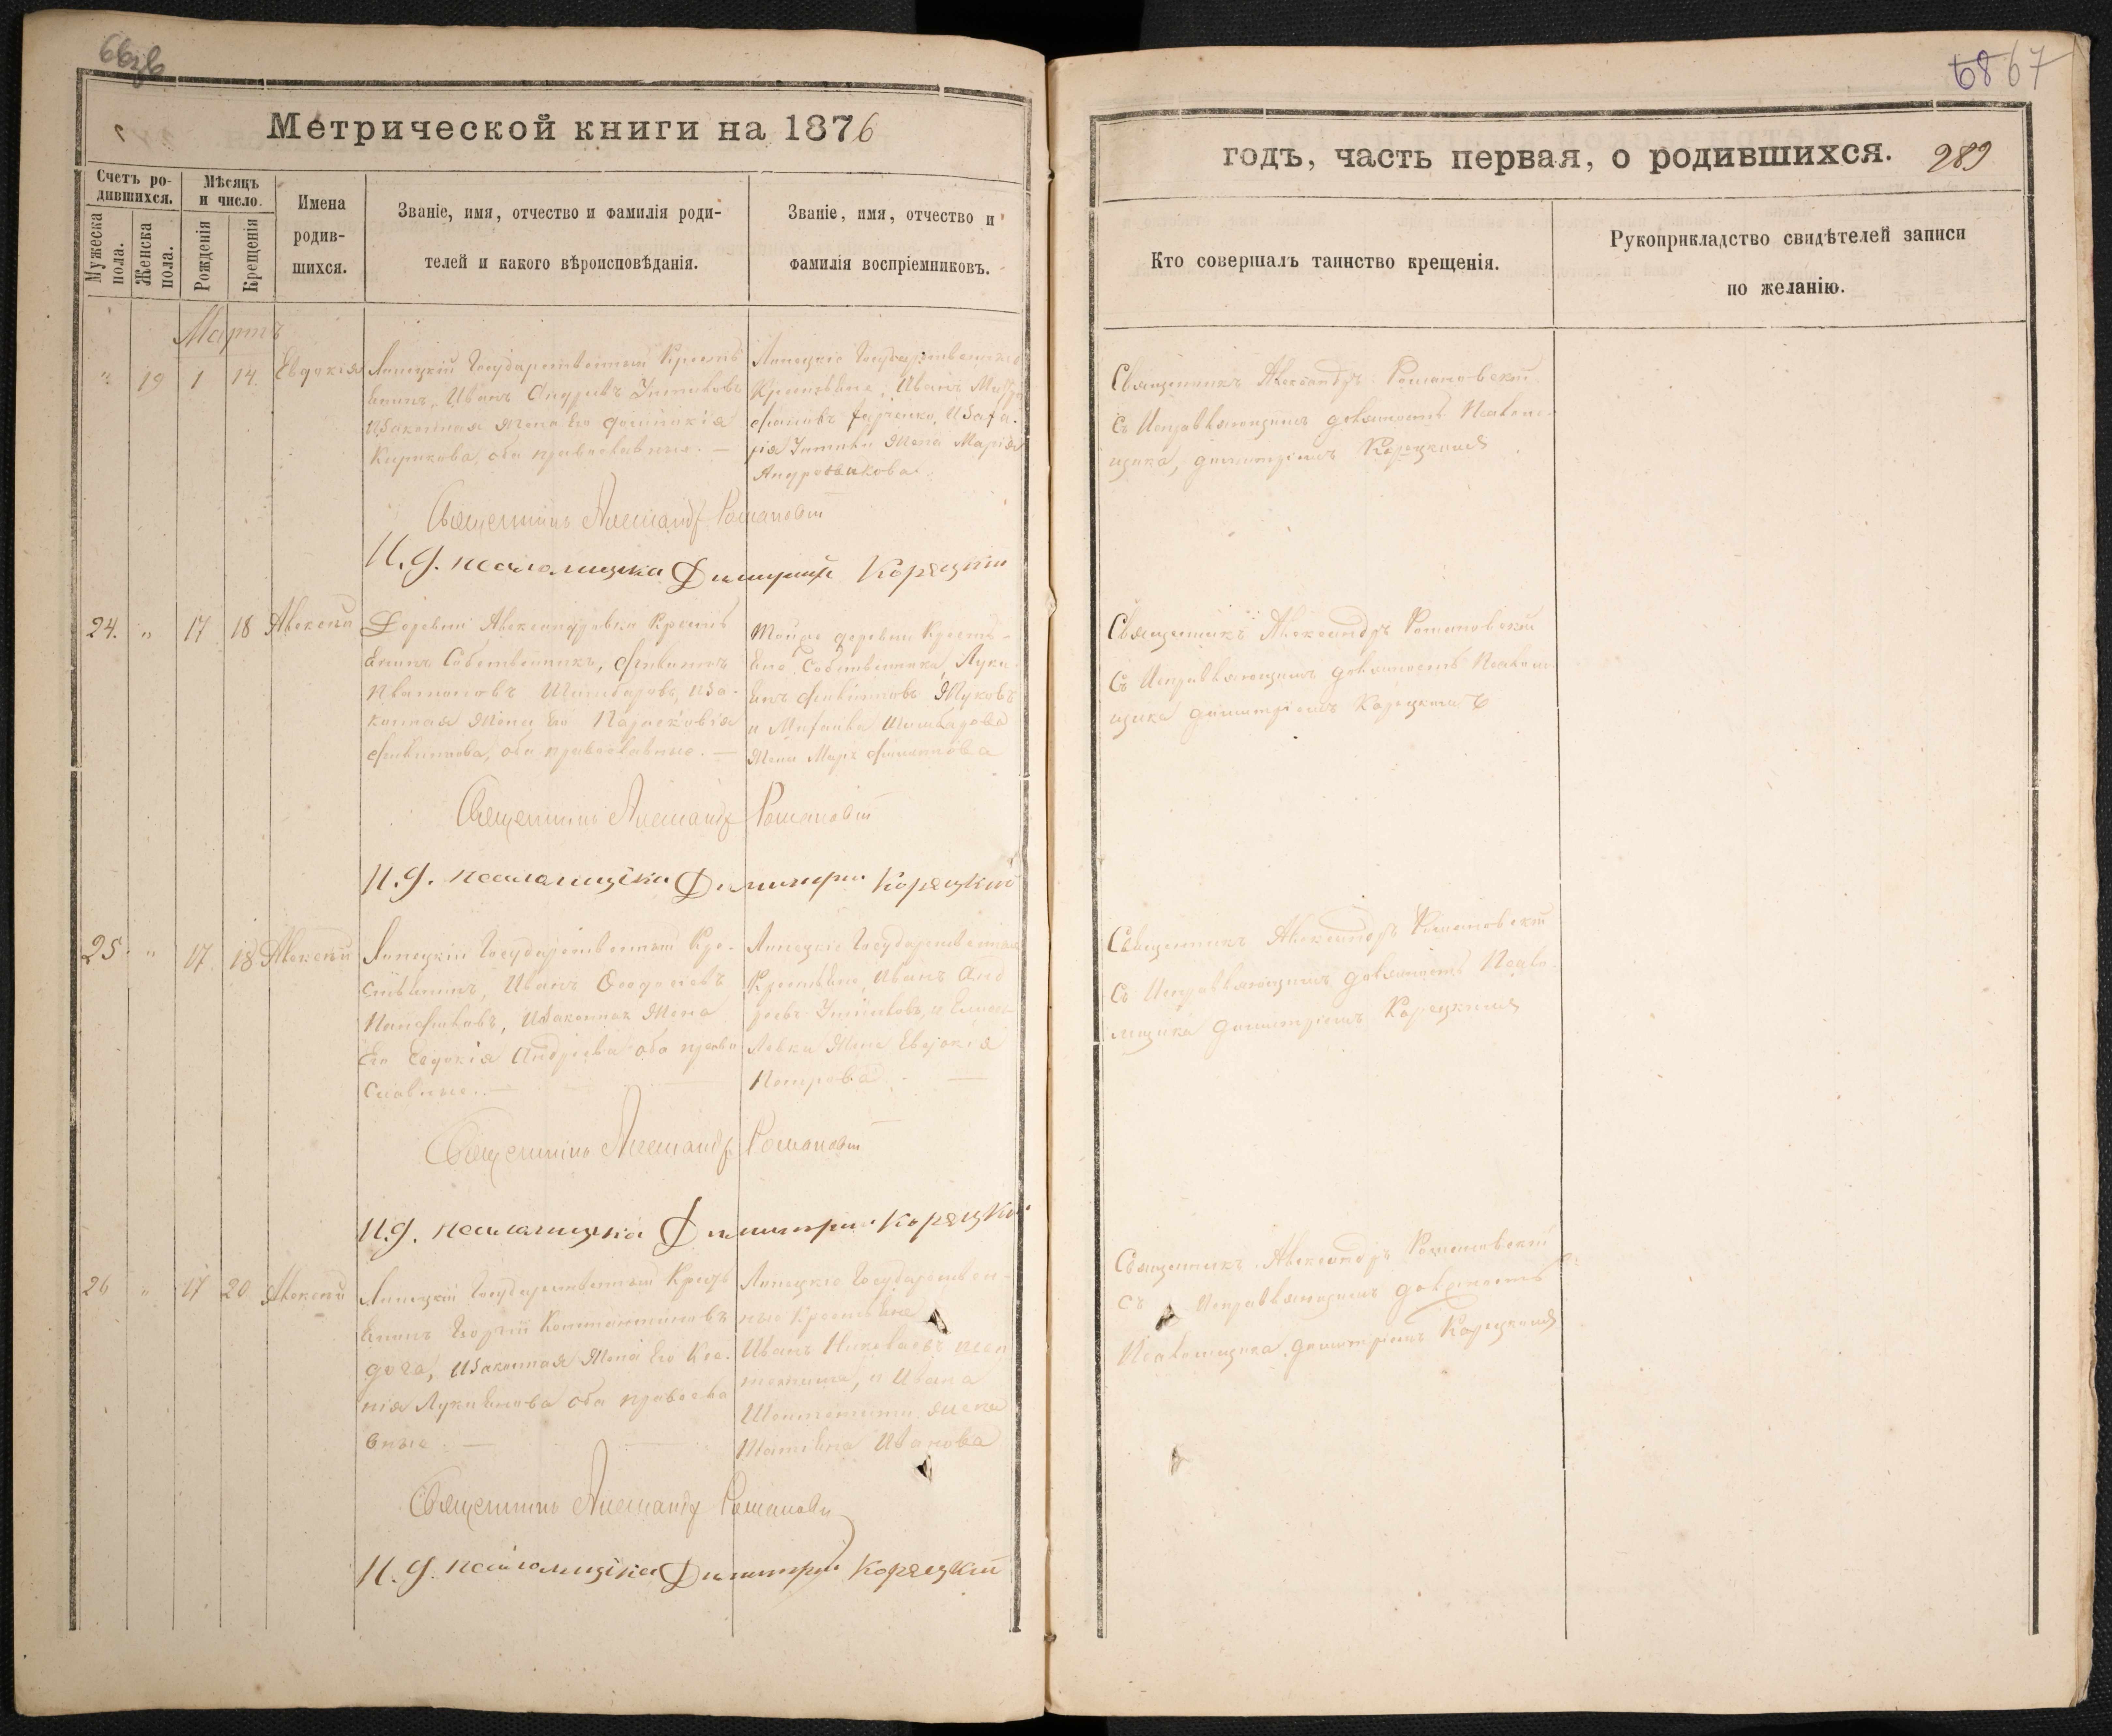 66зв
Метрической книги на 1876
Счетъ ро-
дившихся.
Мѣсяцъ
и число.
Мужеска
пола.
Женска
пола.
Рожденія
Крещенія
Имена
родив-
шихся.
Званіе, имя, отчество и фамилія роди-
телей и какого вѣроисповѣданія.
Званіе, имя, отчество и
фамилія воспріемниковъ.
Мартъ
" 19 1 14. Евдокія
Липецкій Государственный Кресть
янинъ, Иванъ Андреевъ
Изаконная Жена Его Доминикія
Кирикова, оба православные. —
Липецкіе Государственные
Крестьяне, Иванъ
Изаха-
рія Жена Марія
Андроникова.
Священникъ Александръ Романовскій
И. д. псаломщика Димитрій Корецкій
24. " 17 18 Алексѣй
Деревни Александровки Кресть
янинъ Собственникъ, Филиппъ
Платоновъ Шишбаровъ, иза-
конная Жена Его Парасковія
Филиппова, оба православные. —
Тойже деревни Кресть-
яне Собственники, Лукі
янъ Филипповъ Жуковъ
и Михаила Шишбарова
Жена Марѳ Филиппова
Священникъ Александръ Романовскій
И. д. псаломщика Димитрій Корецкій
25. " 17 18 Алексѣй
Липецкій Государственный Кре-
стьянинъ, Иванъ Ѳеодосіевъ
Изаконная Жена
Его Евдокія Андреева оба право
славные. —
Липецкіе Государственные
Крестьяне, Иванъ Анд
реевъ
Жена Евдокія
Петрова. —
Священникъ Александръ Романовскій
И. д. псаломщика Димитрій Корецкій
26 " 17 20 Алексѣй
Липецкій Государственный Кресть
янинъ Георгій Константиновъ
Изаконная Жена Его Ксе-
нія Лукьянова оба правосла
вные. —
Липецкіе Государствен-
ные Крестьяне
Иванъ Николаевъ
и Ивана
жена
Татьяна Иванова
Священникъ Александръ Романовскій
И. д. псаломщика Димитрій Корецкій
68 67
годъ, часть первая, о родившихся. 289
Кто совершалъ таинство крещенія.
Рукоприкладство свидѣтелей записи
по желанію.
Священникъ Александръ Романовскій
Съ Исправляющимъ должность Псалом-
щика, Димитріемъ Корецкимъ
Священникъ Александръ Романовскій
Съ Исправляющимъ должность Псалом-
щика Димитріемъ Корецкимъ
Священникъ Александръ Романовскій
Съ Исправляющимъ должность Псало-
мщика Димитріемъ Корецкимъ
Священникъ Александръ Романовскій
Съ Исправляющимъ должность
Псаломщика Димитріемъ Корецкимъ